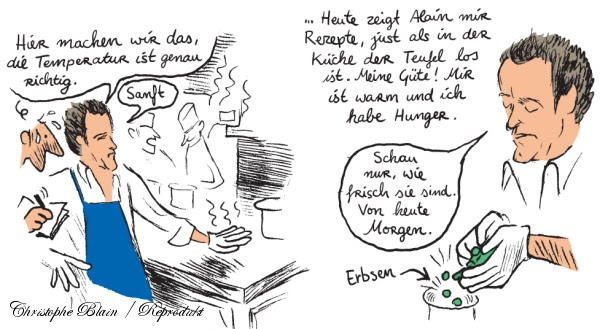 Hier machen wir das,
die Temperatur ist genau
richtig.
Sanft
... Heute zeigt Alain mir
Rezepte, just als in der
Küche der Teufel los
ist. Meine Güte! Mir
ist warm und ich
habe Hunger.
Schau
nur, wie
frisch sie sind.
Von heute
Morgen.
Erbsen
Christophe Blain / Reprodukt